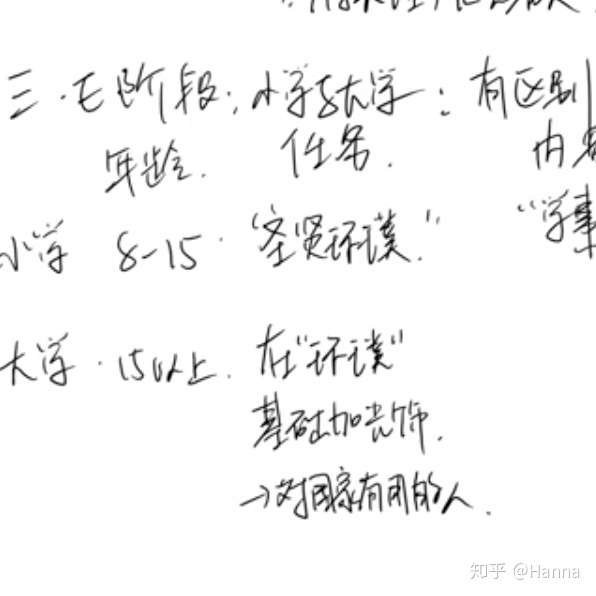 三.七阶段:小学与大学:有区别
年龄. 任务. 内
小学 8-15. "圣贤坯璞." "学事
大学.15以上. 在"坯璞"
基础加光饰.
→对国家有用的人.
知乎 @Hanna